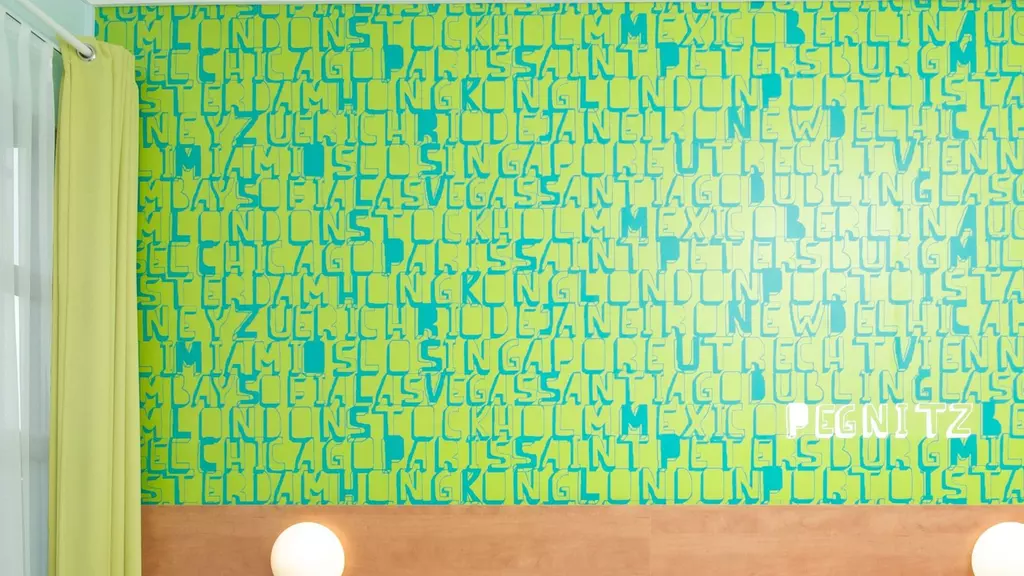 MLINDENSTOCKHOLMMEXICOBERLINAUC
ELCHICAGOPARISSAINTPETERSBURGMIL
STERDAMHONGKONGLONDONPORTOISTA
NEYZUERICHRIODEJANEIRONEWDELHICA
MIAMIOSLOSINGAPOREUTRECHTVIENN
MBAYSOFIALASVEGASSANTIAGODUBLINGLAS
MLINDENSTOCKHOLMMEXICOBERLINAUC
ELCHICAGOPARISSAINTPETERSBURGMIL
STERDAMHONGKONGLONDONPORTOISTA
NEYZUERICHRIODEJANEIRONEWDELHICA
MIAMIOSLOSINGAPOREUTRECHTVIENN
MBAYSOFIALASVEGASSANTIAGODUBLINGLAS
MLINDENSTOCKHOLMMEXICO PEGNITZ BE
ELCHICAGOPARISSAINTPETERSBURGMIL
STERDAMHONGKONGLONDONPORTOISTA